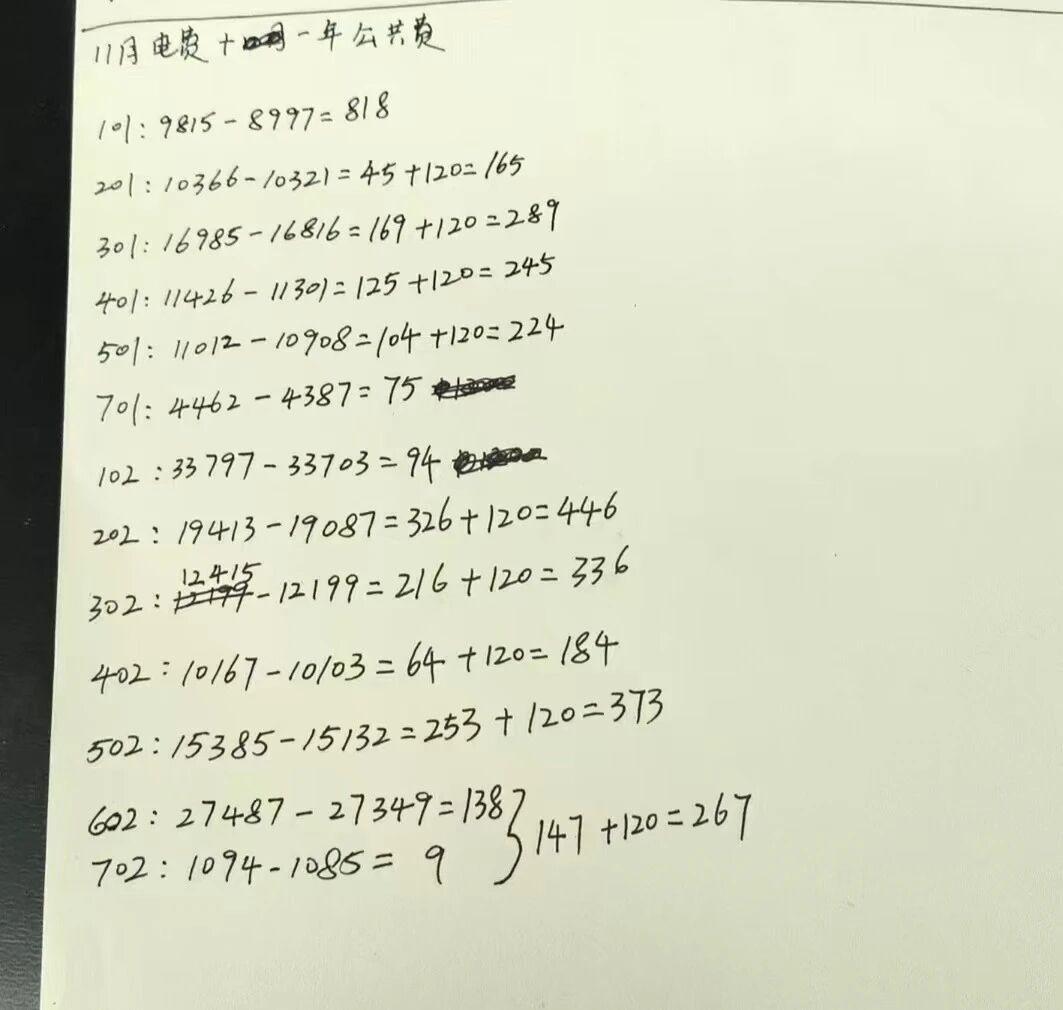 11月电费+一年公共费
101:9815-8997=818
201:10366-10321=45+120=165
301:16985-16816=169+120=289
401:11426-11301=125+120=245
501:11012-10908=104+120=224
701:4462-4387=75
102:33797-33703=94
202:19413-19087=326+120=446
12415
302:12199-12199=216+120=336
402:10167-10103=64+120=184
502:15385-15132=253+120=373
602:27487-27349=138
702:1094-1085=9
}147+120=267